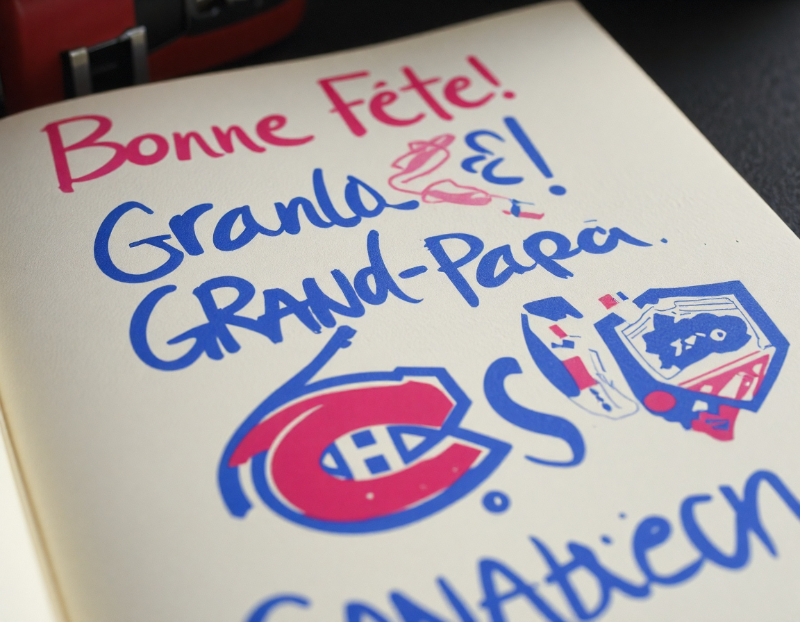 Bonne Fête!
Granla &!
GRANd-Papa.
CH
S
CANAbiecn